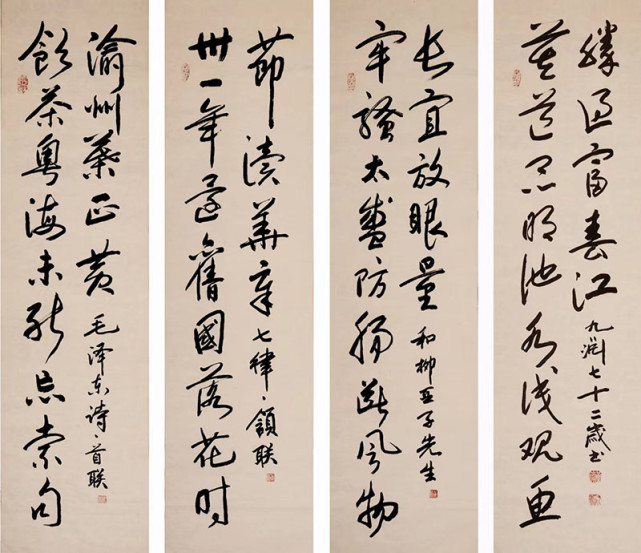 飲茶粤海未能忘索句
渝州葉正黄
毛泽东诗·首联
卅一年還舊國落花时
節讀華章
七律·領联
牢騷太盛防肠断风物
长宜放眼量
和柳亚子先生
莫道昆明池水浅观鱼
勝过富春江
九渊七十二歲书